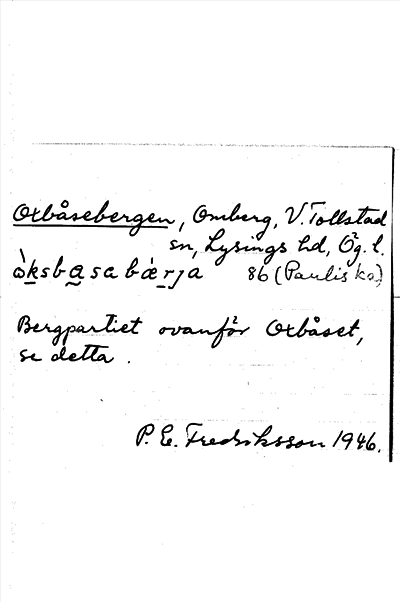 Oxbåsebergen, Omberg, V. Tollstad
sn, Lysings hd, Ög. l.
òksbasabǽrja 86 (Paulis ka)
Bergpartiet ovanför Oxbåset,
se detta.
P. E. Fredriksson 1946.